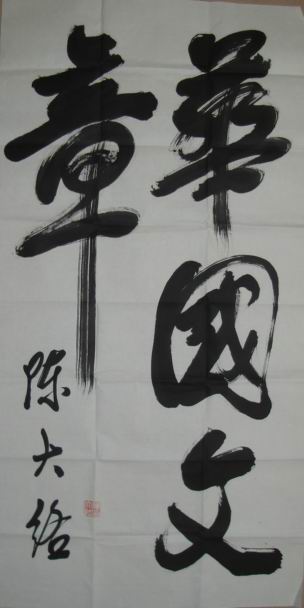 華國文
章
陈大络